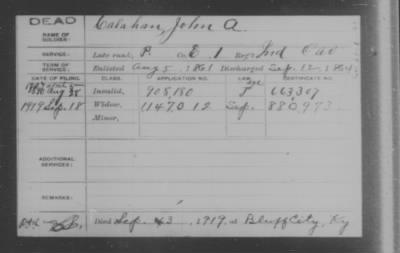 DEAD
NAME OF SOLDIER: Calahan, John A.
SERVICE: Late rank, P. Co. E. 1 Reg't Ind Cav
TERM OF SERVICE: Enlisted Aug 5, 1861 Discharged Sep. 12, 1864
DATE OF FILING. CLASS. APPLICATION NO. LAW. CERTIFICATE NO.
Aug Invalid, 908,180 663307
1919 Sep. 18 Widow, 1147012 Sep. 880,973
Minor,
ADDITIONAL SERVICES:
REMARKS:
Died Sep. 1919, at Bluff City, Ky